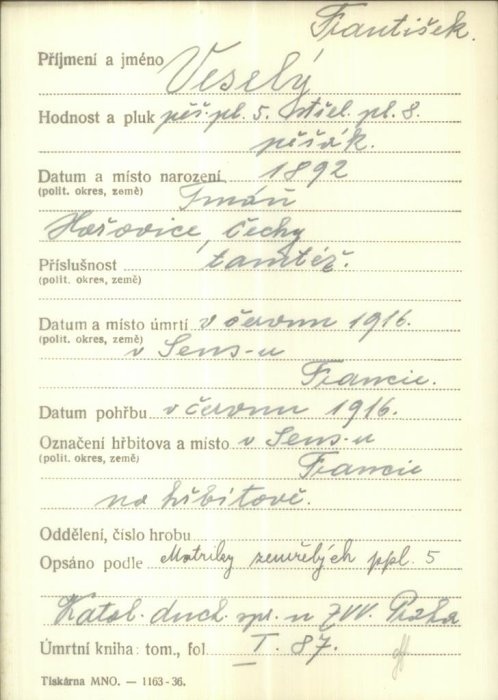 František.
Příjmení a jméno Veselý
Hodnost a pluk pěš. pl. 5. střel. pl. 8.
pěšák.
Datum a místo narození 1892
(polit. okres, země) Jmáň
Hořovice, Čechy
Příslušnost tamtéž.
(polit. okres, země)
Datum a místo úmrtí v červnu 1916.
(polit. okres, země) v Sens-u
Francie.
Datum pohřbu v červnu 1916.
Označení hřbitova a místo v Sens-u
(polit. okres, země) Francie
na hřbitově.
Oddělení, číslo hrobu
Opsáno podle Matriky zemřelých ppl. 5
Katol. duch. spr. u ZVV. Praha
Úmrtní kniha: tom., fol. I. 87.
Tiskárna MNO. — 1163-36.